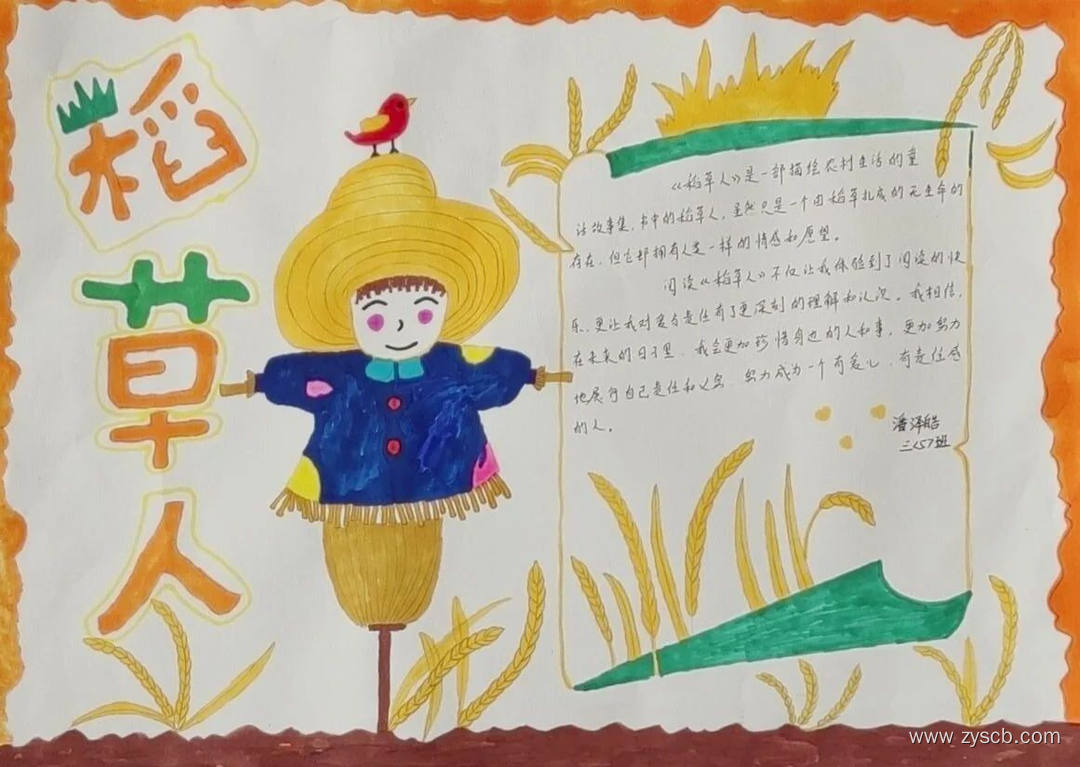 稻
草
人
《稻草人》是一部描绘农村生活的童
话故事集,书中的稻草人,虽然只是一个由稻草扎成的无生命的
存在,但它却拥有人类一样的情感和愿望。
阅读《稻草人》不仅让我体验到了阅读的快
乐,更让我对爱与责任有了更深刻的理解和认识。我相信,
在未来的日子里,我会更加珍惜身边的人和事,更加努力
地履行自己责任和义务,努力成为一个有爱心、有责任感
的人。
潘泽皓
三〈5〉班
www.zyscb.com